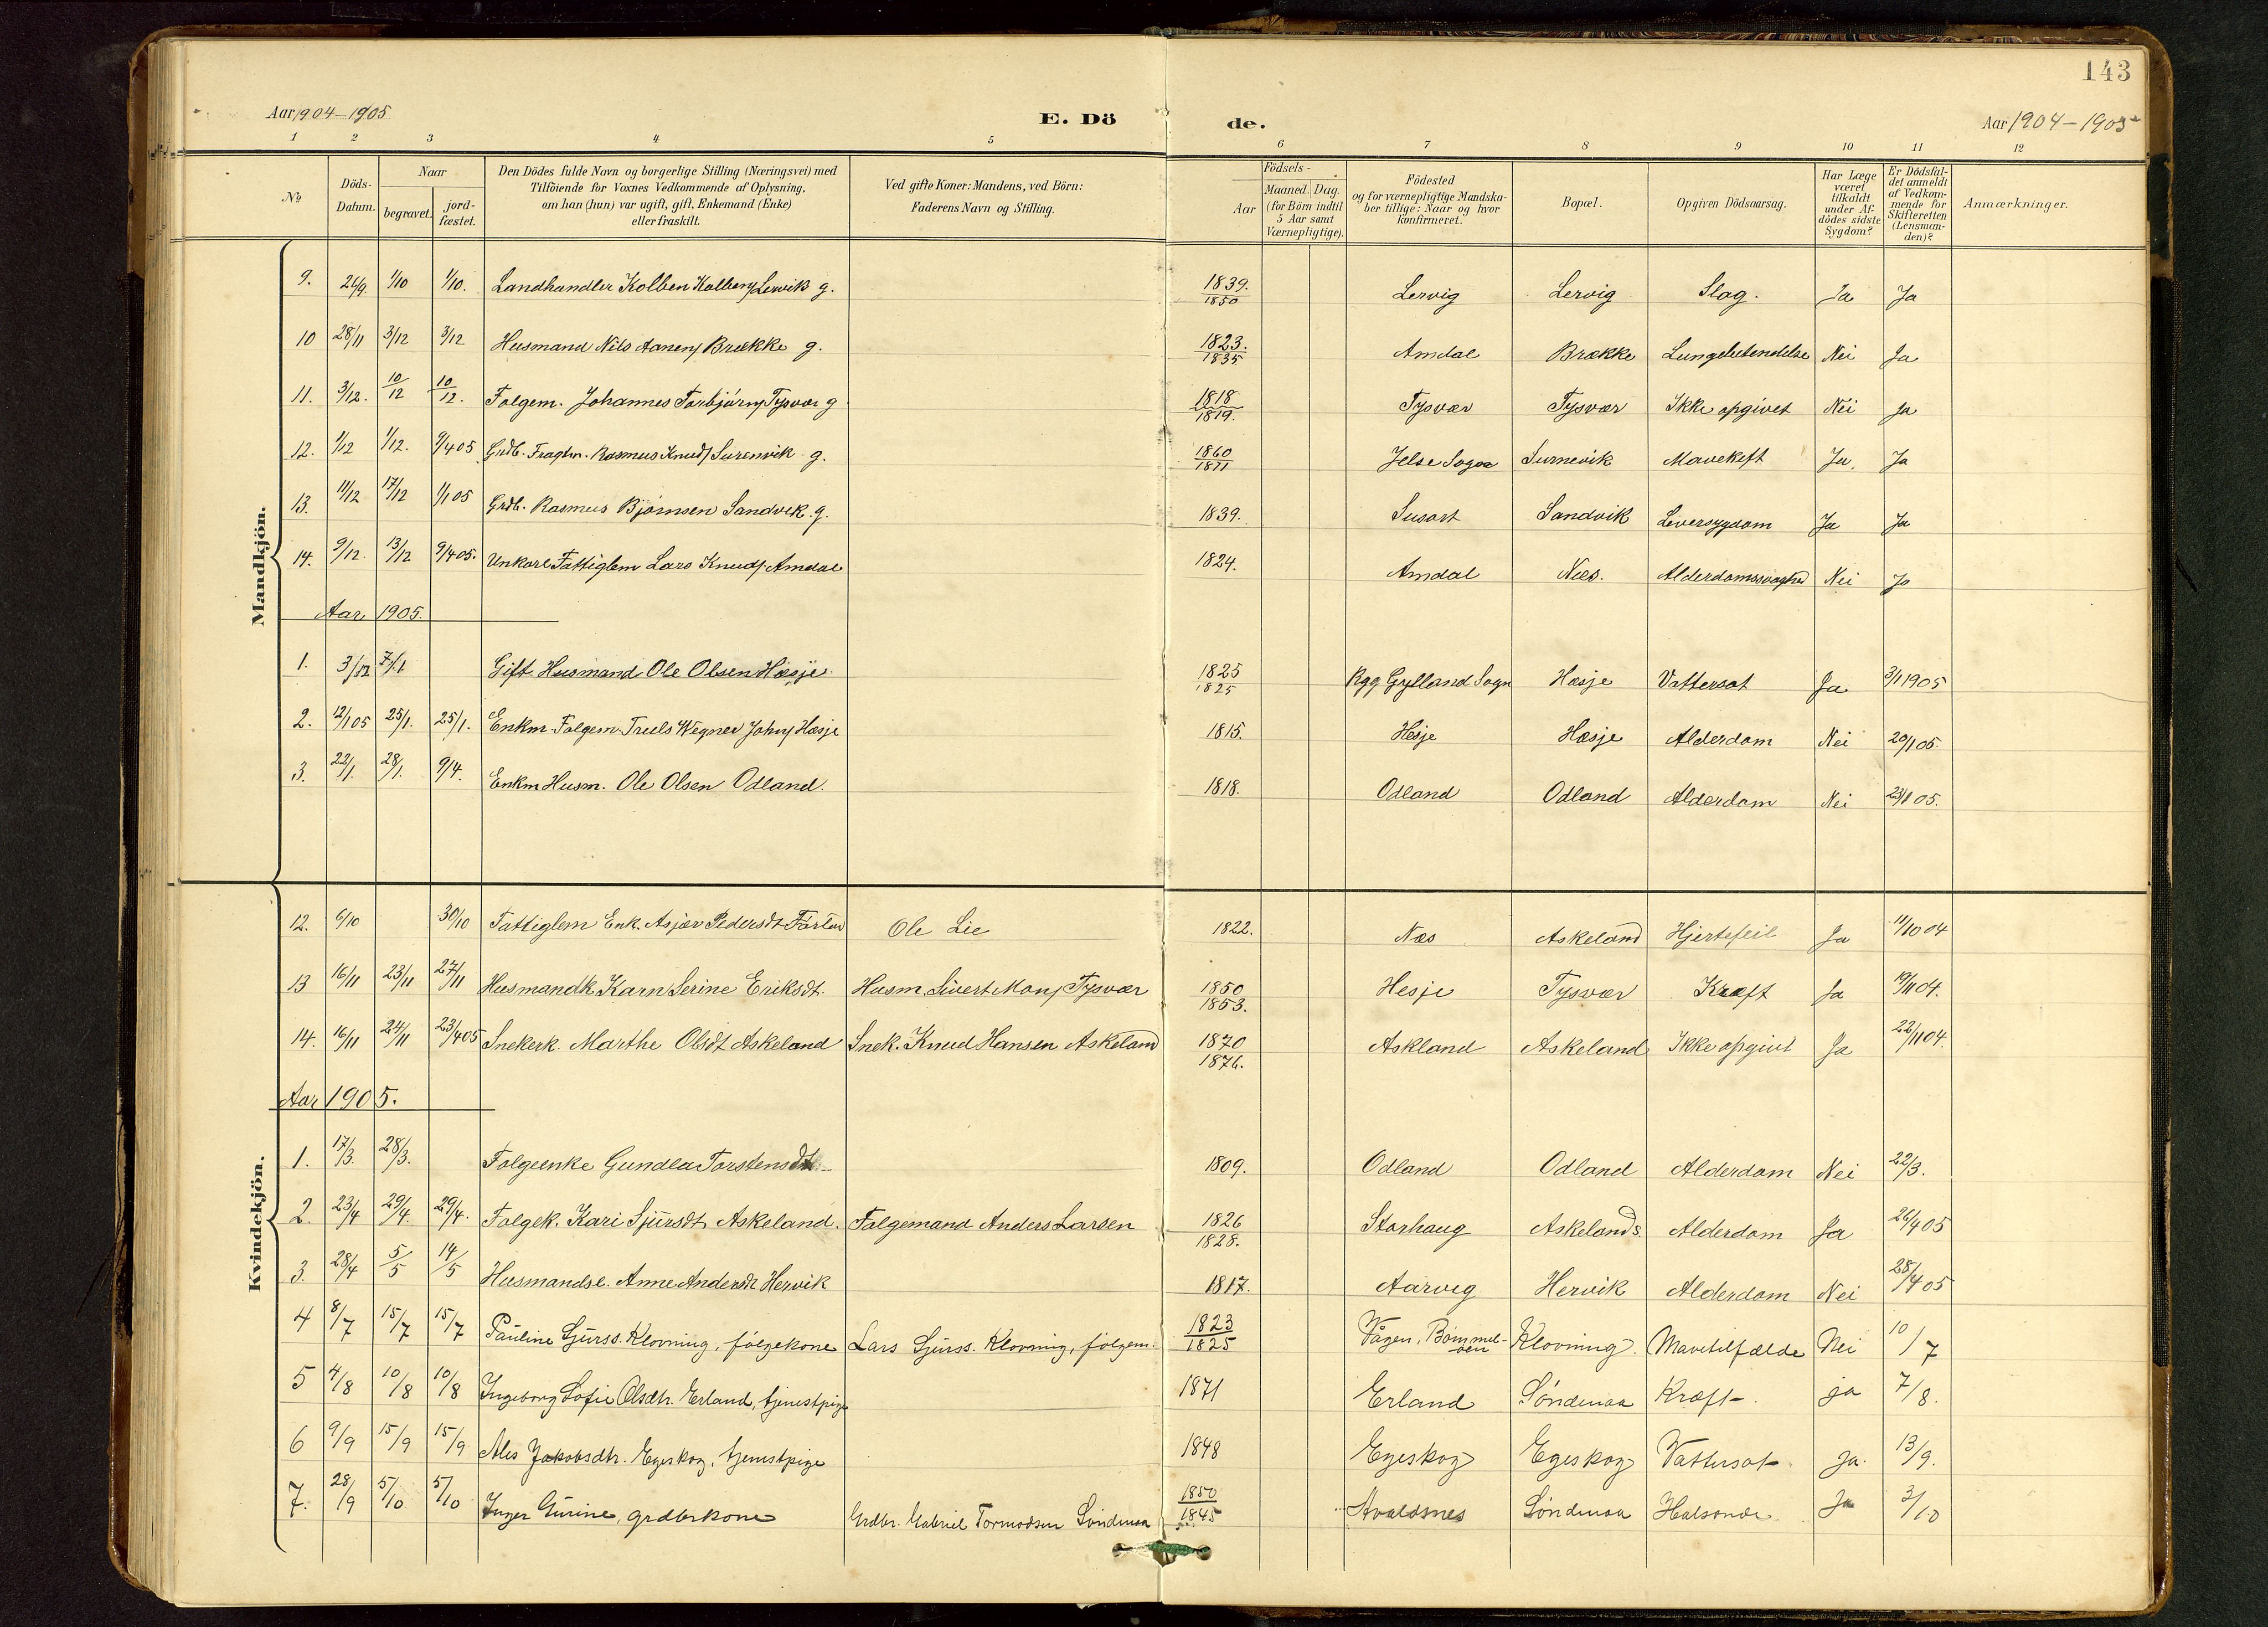 143
Aar 1904-1905 E. Dö de. Aar 1904-1905
1 2 3 4 5 6 7 8 9 10 11 12
No Döds-Datum. Naar begravet. jord-fæstet. Den Dödes fulde Navn og borgerlige Stilling (Næringsvei) med Tilföiende for Voxnes Vedkommende af Oplysning, om han (hun) var ugift, gift, Enkemand (Enke) eller fraskilt. Ved gifte Koner: Mandens, ved Börn: Faderens Navn og Stilling. Födsels- Aar Maaned. Dag. (for Börn indtil 5 Aar samt Værnepligtige). Födested og for værnepligtige Mandska-ber tillige: Naar og hvor konfirmeret. Bopæl. Opgiven Dödsaarsag. Har Læge været tilkaldt under Af-dödes sidste Sygdom? Er Dödsfal-det anmeldt af Vedkom-mende for Skifteretten (Lensman-den)? Anmærkninger.
Mandkjön.
9. 26/9. 1/10 1/10. Landhandler Kolben Kolbens Lervik g. 1839. 1850 Lervig Lervig Slag. Ja Ja
10 28/11 3/12 3/12 Husmand Nils Aanens Brække g. 1823. 1835 Amdal Brække Lungebetendelse Nei Ja
11. 3/12. 10/12 10/12. Folgem. Johannes Torbjörns Tysvær g 1818 1819. Tysvær Tysvær Ikke opgivet Nei Ja
12. 1/12 1/12. 9/4 05 Grdb. Fragtm. Rasmus Knuds Surenvik g. 1860 1871 Jelse Sogn Surnevik Mavekeft Ja, Ja
13. 11/12 17/12 1/1 05 Grdb. Rasmus Bjørnsen Sandvik. g. 1839. Susort Sandvik Leversygdom Ja Ja
14. 9/12. 13/12 9/4 05. Unkarl Fattiglem Lars Knuds Amdal 1824. Amdal Næs. Alderdomssvaghed Nei Jo
Aar 1905.
1. 3/12 7/1 Gift Husmand Ole Olsen Hæsje 1825 1825 Rgg Gylland Sogn Hæsje Vattersot Ja 3/1 1905
2. 12/1 05 25/1. 25/1. Enkm. Folgem. Truels Wegner Johns Hæsje 1815. Hesje Hæsje Alderdom Nei 20/1 05.
3. 22/1. 28/1. 9/4. Enkm Husm. Ole Olsen Odland. 1818. Odland Odland Alderdom Nei 23/1 05.
Kvindekjön.
12. 6/10 30/10 Fattiglem Enk. Asjær Pedersdt Ole Lie 1822. Næs Askeland Hjertefeil Ja 11/10 04
13 16/11 23/11 27/11 Husmandk Karn Serine Eriksdt. Husm. Sivert Mons Tysvær 1850 1853. Hesje Tysvær Kræft Ja 19/11 04.
14. 16/11 24/11 23/4 05 Snekerk. Marthe Olsdt Askeland Snek. Knud Hansen Askeland 1870 1876. Askland Askeland Ikke opgivt Ja 22/11 04.
Aar 1905.
1. 17/3. 28/3. Folgeenke Gundla Torstensdt. 1809. Odland Odland Alderdom Nei 22/3.
2. 23/4 29/4. 29/4. Folgek. Kari Sjursdt Askeland. Folgemand Anders Larsen 1826 1828. Storhaug Askelands. Alderdom Ja 26/4 05
3. 28/4 5/5 14/5 Husmandse. Anne Andersdt Hervik 1817. Aarvig Hervik Alderdom Nei 28/4 05
4 8/7 15/7 15/7 Pauline Sjurss. Klovning, følgekone Lars Sjurss. Klovning, følgem. 1823 1825 Vågen, Bømmel-øen Klovning. Mavetilfælde Nei 10/7
5 4/8 10/8 10/8 Ingeborg Sofie Olsdtr. Erland, tjenestpige 1871 Erland Søndenaa Kræft. ja 7/8.
6 9/9 15/9 15/9 Ales Jakobsdtr. Egeskog, tjenestpige 1848 Egeskog Egeskog Vattersot ja. 13/9.
7. 28/9 5/10 5/10 Inger Gurine, grdbrkone Grdbr. Gabriel Tormodsen Søndenaa 1850 1845 Avaldsnes Søndenaa Halsonde Ja 3/10